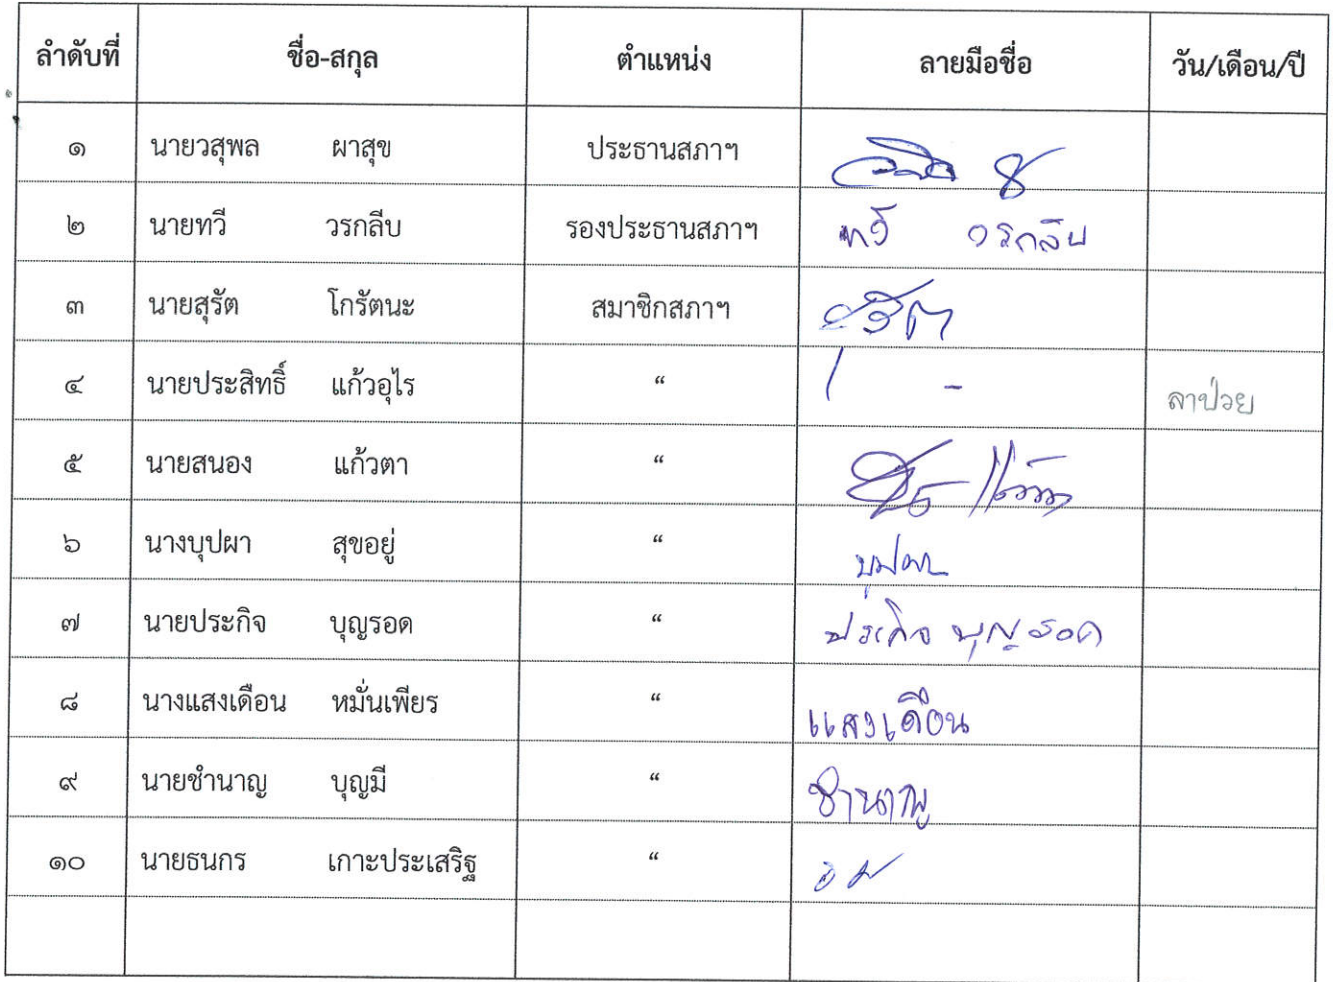 ลำดับที่ ชื่อ-สกุล ตำแหน่ง ลายมือชื่อ วัน/เดือน/ปี
๑ นายวสุพล ผาสุข ประธานสภาฯ
๒ นายทวี วรกลีบ รองประธานสภาฯ ทวี วรกลีบ
๓ นายสุรัต โกรัตนะ สมาชิกสภาฯ
๔ นายประสิทธิ์ แก้วอุไร “ - ลาป่วย
๕ นายสนอง แก้วตา “
๖ นางบุปผา สุขอยู่ “ บุปผา
๗ นายประกิจ บุญรอด “ ประกิจ บุญรอด
๘ นางแสงเดือน หมั่นเพียร “ แสงเดือน
๙ นายชำนาญ บุญมี “ ชำนาญ
๑๐ นายธนกร เกาะประเสริฐ “